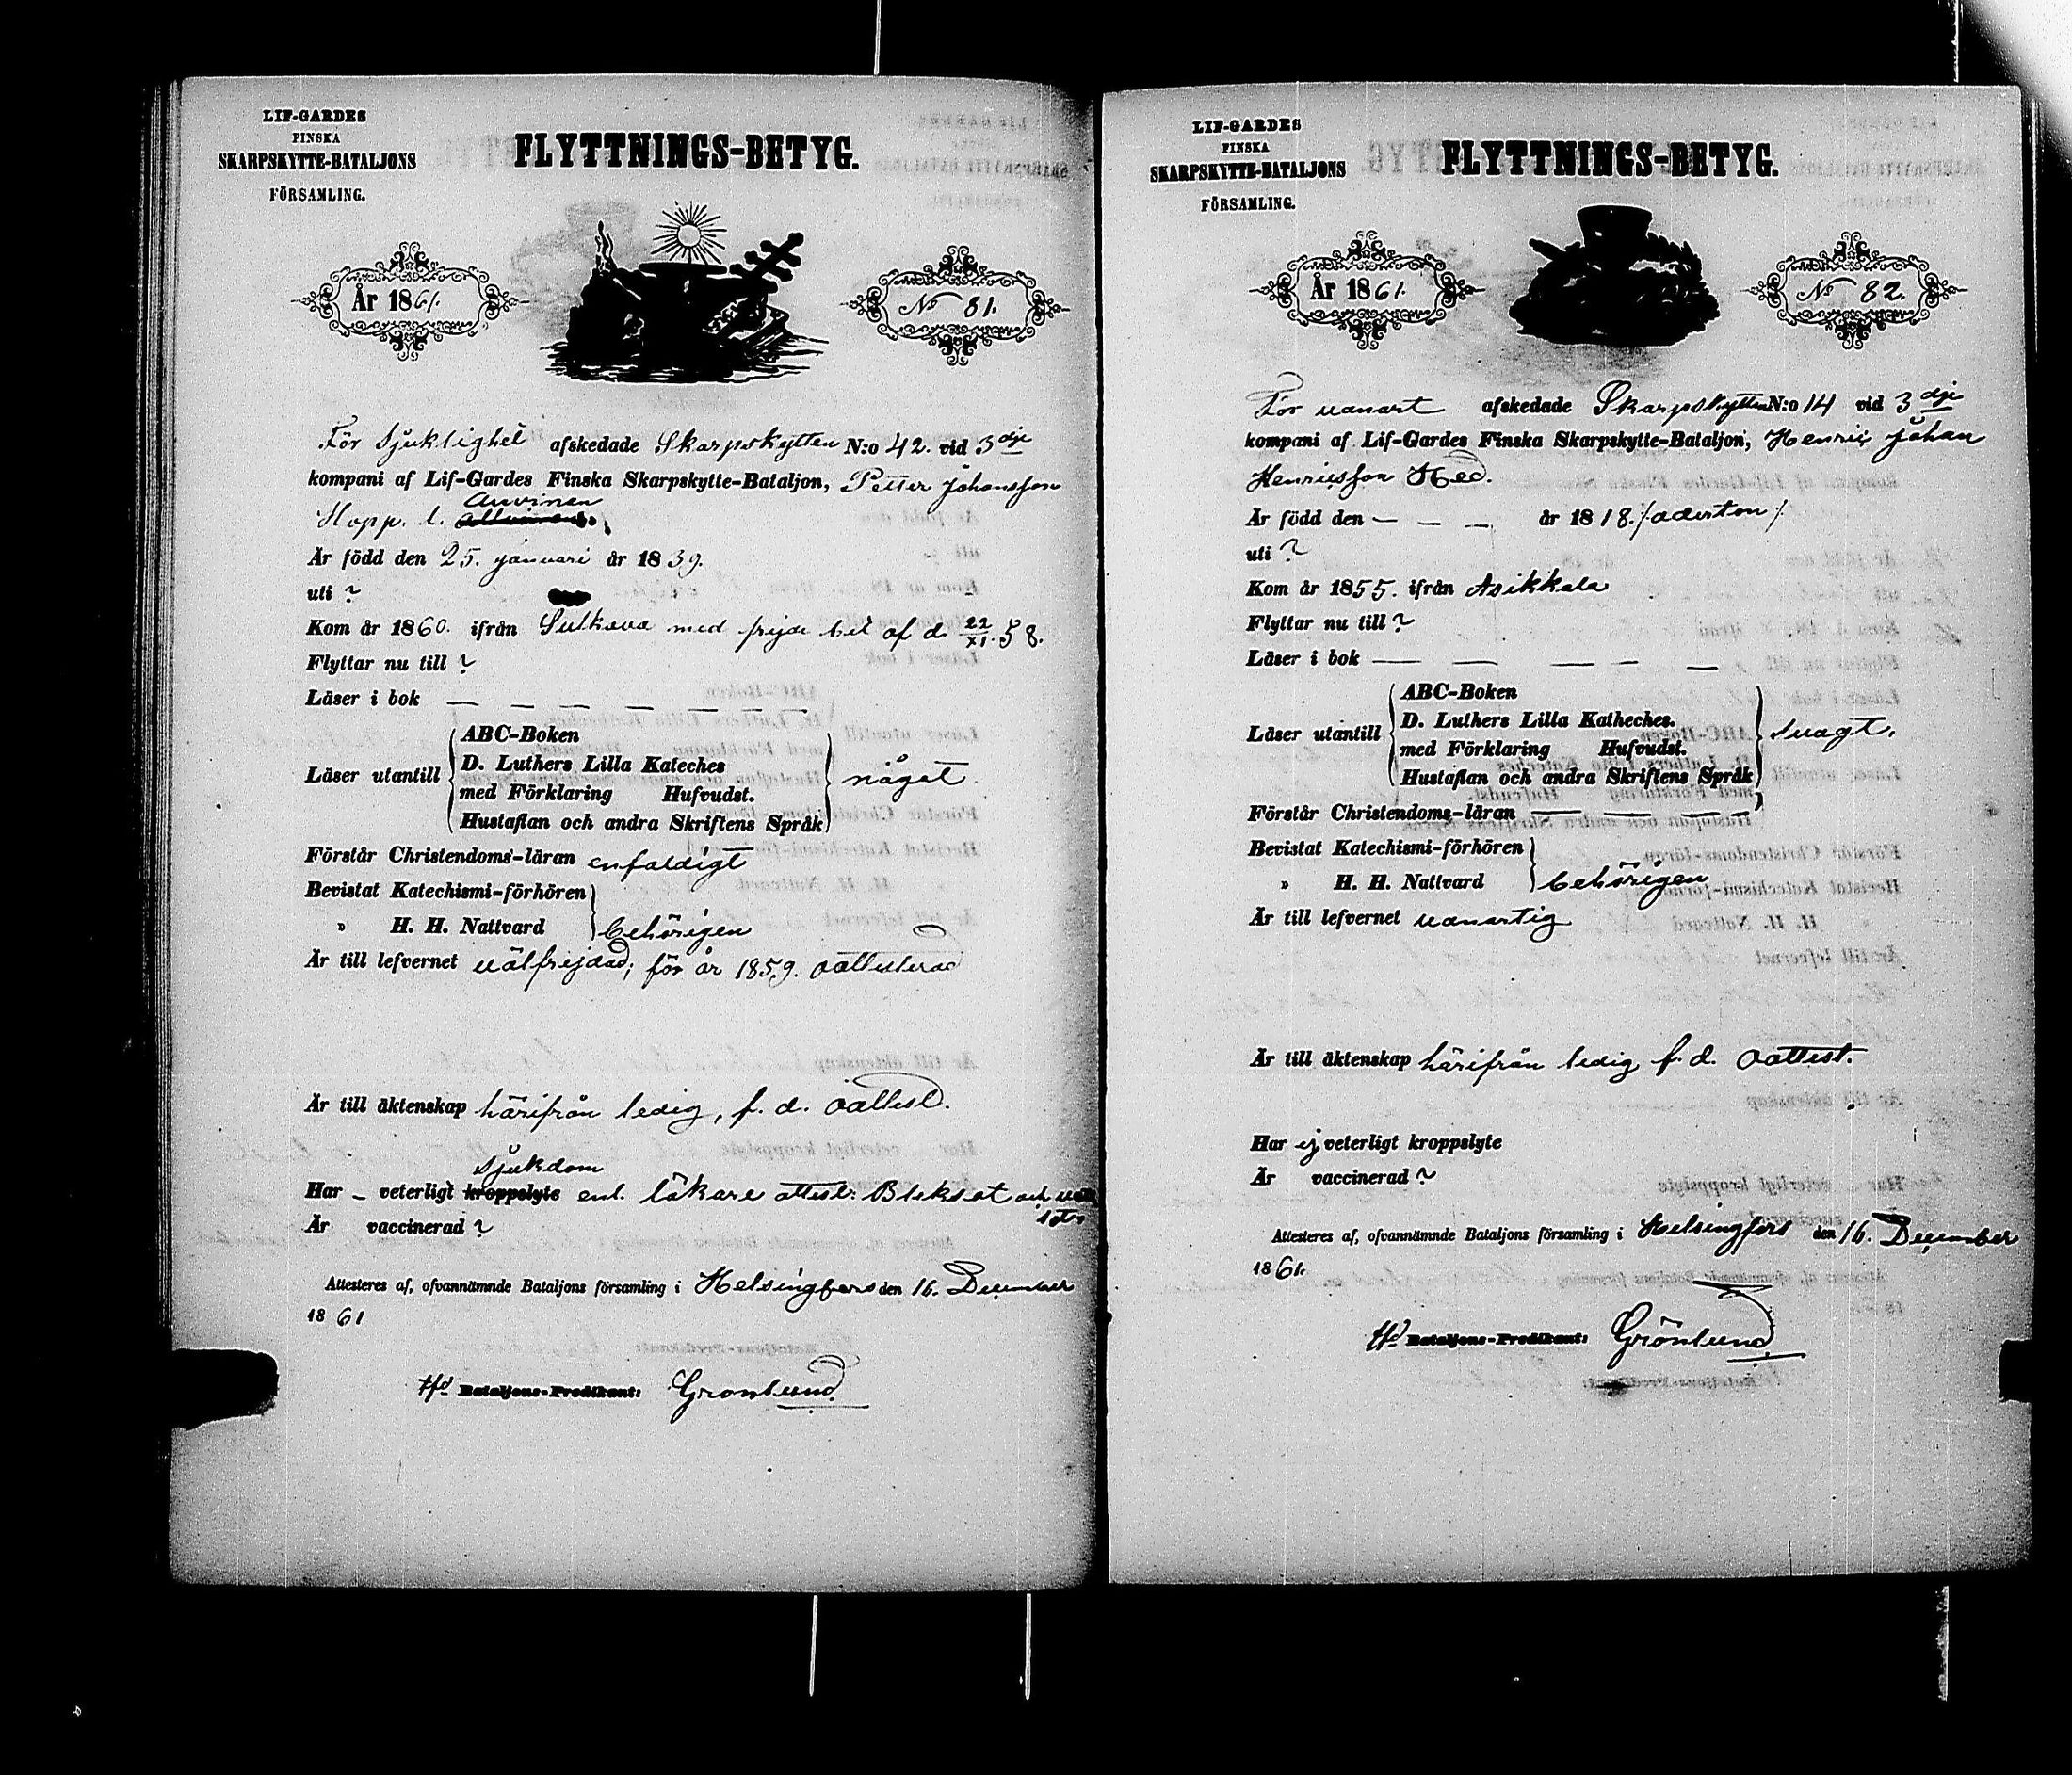 LIF-GARDES
FINSKA
SKARPSKYTTE-BATALJONS
FÖRSAMLING.
FLYTTNINGS-BETYG.
År 1861.
No 81.
För Sjuklighet afskedade Skarpskytten N:o 42. vid 3dje
kompani af Lif-Gardes Finska Skarpskytte-Bataljon, Petter Johansson
Auvinen
Hopp. l.
Är född den 25. januari år 1839.
uti ?
Kom år 1860. ifrån Sulkava med frejde bet af d. 22/XI. 58.
Flyttar nu till ?
Läser i bok — — — — — — —
Läser utantill
ABC-Boken
D. Luthers Lilla Kateches
med Förklaring Hufvudst.
Hustaflan och andra Skriftens Språk
något.
Förstår Christendoms-läran enfaldigt
Bevistat Katechismi-förhören
" H. H. Nattvard behörigen
Är till lefvernet välfrejdad; för år 1859. oattesterad
Är till äktenskap härifrån ledig, f. d. oattest.
sjukdom
Har — veterligt kroppslyte enl. läkare attest: Bleksot och
Är vaccinerad ?
Attesteras af, ofvannämnde Bataljons församling i Helsingfors den 16. December
1861
Bataljons-Predikant: Grönlund
LIF-GARDES
FINSKA
SKARPSKYTTE-BATALJONS
FÖRSAMLING.
FLYTTNINGS-BETYG.
År 1861.
No 82.
För vanart afskedade Skarpskytten N:o 14 vid 3dje
kompani af Lif-Gardes Finska Skarpskytte-Bataljon, Henric Johan
Henricsson Hed.
Är född den — — — år 1818. /: aderton /:
uti ?
Kom år 1855. ifrån Asikkala
Flyttar nu till ?
Läser i bok — — — — —
Läser utantill
ABC-Boken
D. Luthers Lilla Katheches.
med Förklaring Hufvudst.
Hustaflan och andra Skriftens Språk
svagt.
Förstår Christendoms-läran — — — —
Bevistat Katechismi-förhören
" H. H. Nattvard behörigen
Är till lefvernet vanartig
Är till äktenskap härifrån ledig f. d. oattest.
Har ej veterligt kroppslyte
Är vaccinerad ?
Attesteres af, ofvannämnde Bataljons församling i Helsingfors den 16. December
1861.
Bataljons-Predikant: Grönlund